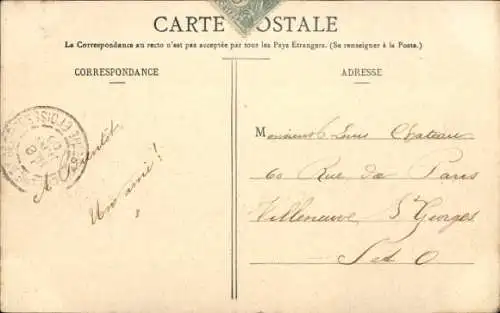 CARTE POSTALE
La Correspondance au recto n'est pas acceptée par tous les Pays Etrangers. (Se renseigner à la Poste.)
CORRESPONDANCE
ADRESSE
A Bientôt
Un ami!
Monsieur Louis Chateau
60 Rue de Paris
Villeneuve St Georges
S et O